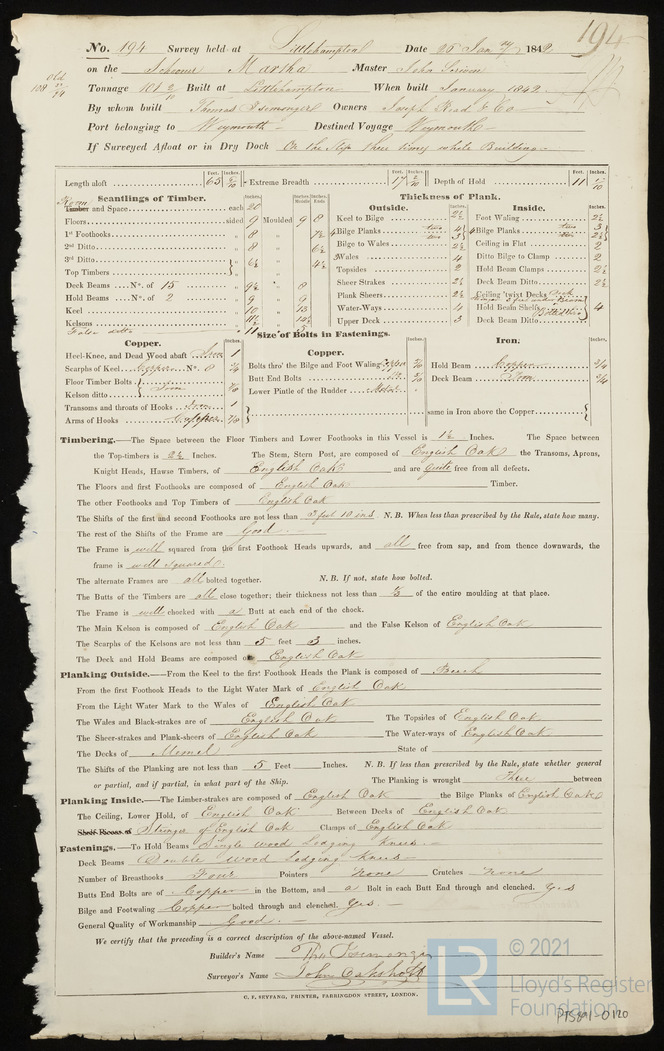 194
No. 194 Survey held at Littlehampton Date 26 Jany 1842
on the Schooner Martha Master John
Old 108
Tonnage 101 Built at Littlehampton When built January 1842
By whom built Thomas Isemonger Owners Joseph Read & Co
Port belonging to Weymouth Destined Voyage Weymouth
If Surveyed Afloat or in Dry Dock On the slip three times while Building
Feet. Inches. Feet. Inches. Feet. Inches.
Length aloft 65 Extreme Breadth 17 Depth of Hold 11
Scantlings of Timber.
Thickness of Plank.
Outside. Inside.
Room
Timber and Space each 20
Floors sided 9 Moulded 9 8
1st Foothooks 8 7½
2nd Ditto 8 6½
3rd Ditto 6½ 4½
Top Timbers
Deck Beams No. of 15 9½ 8
Hold Beams No. of 2 9 9
Keel 10 13
Kelsons
False ditto 11
Keel to Bilge 2½ Foot Waling 2½
Bilge Planks two 4 two 3 Bilge Planks two 3 2½
Bilge to Wales 2½ Ceiling in Flat 2
Wales 4 Ditto Bilge to Clamp 2
Topsides 2 Hold Beam Clamps 2½
Sheer Strakes 2½ Deck Beam Ditto 2½
Plank Sheers 2½ Ceiling 'twixt Decks
Water-Ways 4 Hold Beam Shelf 4
Upper Deck 3 Deck Beam Ditto
Size of Bolts in Fastenings.
Copper. Copper. Iron.
Heel-Knee, and Dead Wood abaft Iron 1
Scarphs of Keel Copper No. 8
Floor Timber Bolts Iron
Kelson ditto
Transoms and throats of Hooks Iron 1
Arms of Hooks Copper
Bolts thro' the Bilge and Foot Waling Copper
Butt End Bolts
Lower Pintle of the Rudder
Hold Beam Copper
Deck Beam Iron
same in Iron above the Copper
Timbering.—The Space between the Floor Timbers and Lower Foothooks in this Vessel is 1½ Inches. The Space between
the Top-timbers is 2½ Inches. The Stem, Stern Post, are composed of English Oak the Transoms, Aprons,
Knight Heads, Hawse Timbers, of English Oak and are quite free from all defects.
The Floors and first Foothooks are composed of English Oak Timber.
The other Foothooks and Top Timbers of English Oak
The Shifts of the first and second Foothooks are not less than 3 feet 10 ins N. B. When less than prescribed by the Rule, state how many.
The rest of the Shifts of the Frame are Good
The Frame is well squared from the first Foothook Heads upwards, and all free from sap, and from thence downwards, the
frame is well squared.
The alternate Frames are all bolted together. N. B. If not, state how bolted.
The Butts of the Timbers are all close together; their thickness not less than ⅓ of the entire moulding at that place.
The Frame is well chocked with a Butt at each end of the chock.
The Main Kelson is composed of English Oak and the False Kelson of English Oak
The Scarphs of the Kelsons are not less than 5 feet 3 inches.
The Deck and Hold Beams are composed of English Oak
Planking Outside.—From the Keel to the first Foothook Heads the Plank is composed of Beech
From the first Foothook Heads to the Light Water Mark of English Oak
From the Light Water Mark to the Wales of English Oak
The Wales and Black-strakes are of English Oak The Topsides of English Oak
The Sheer-strakes and Plank-sheers of English Oak The Water-ways of English Oak
The Decks of Memel State of
The Shifts of the Planking are not less than 5 Feet Inches. N. B. If less than prescribed by the Rule, state whether general
or partial, and if partial, in what part of the Ship. The Planking is wrought Three between
Planking Inside.—The Limber-strakes are composed of English Oak the Bilge Planks of English Oak
The Ceiling, Lower Hold, of English Oak Between Decks of English Oak
Shelf Pieces of Stringer of English Oak Clamps of English Oak
Fastenings.—To Hold Beams Single Wood Lodging Knees
Deck Beams Double Wood Lodging Knees
Number of Breasthooks Four Pointers None Crutches None
Butts End Bolts are of Copper in the Bottom, and a Bolt in each Butt End through and clenched. Yes
Bilge and Footwaling Copper bolted through and clenched. Yes.
General Quality of Workmanship Good.
We certify that the preceding is a correct description of the above-named Vessel.
Builder's Name Thos Isemonger
Surveyor's Name John Oakshott
C. F. SEYFANG, PRINTER, FARRINGDON STREET, LONDON.
LR © 2021
Lloyd's Register
Foundation
PTS891-0120